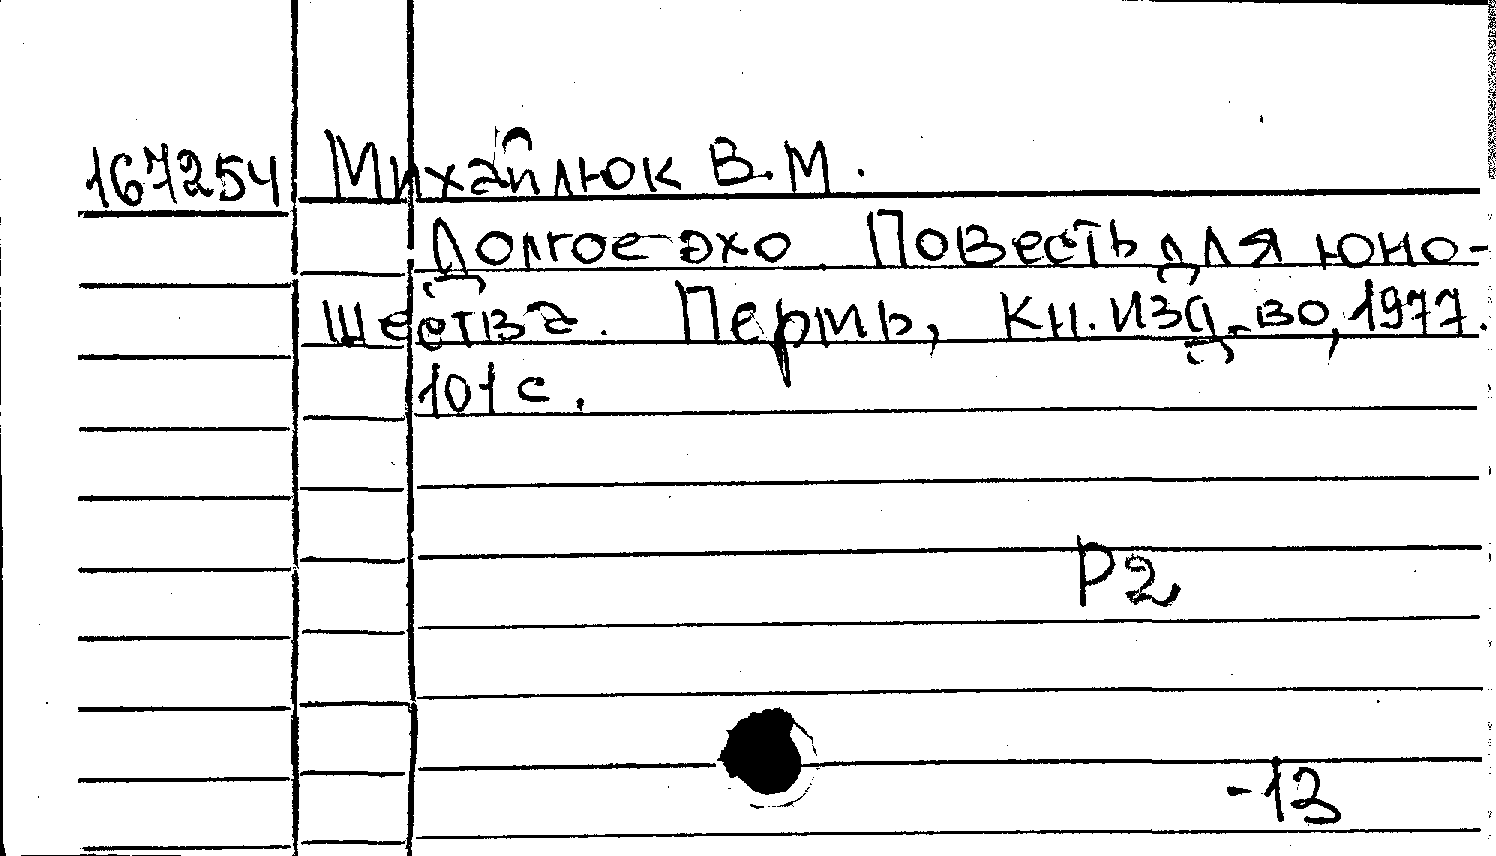 167254 Михайлюк В.М.
Долгое эхо. Повесть для юно-
шества. Пермь, Кн. изд-во, 1977.
101 с.
Р2
-13